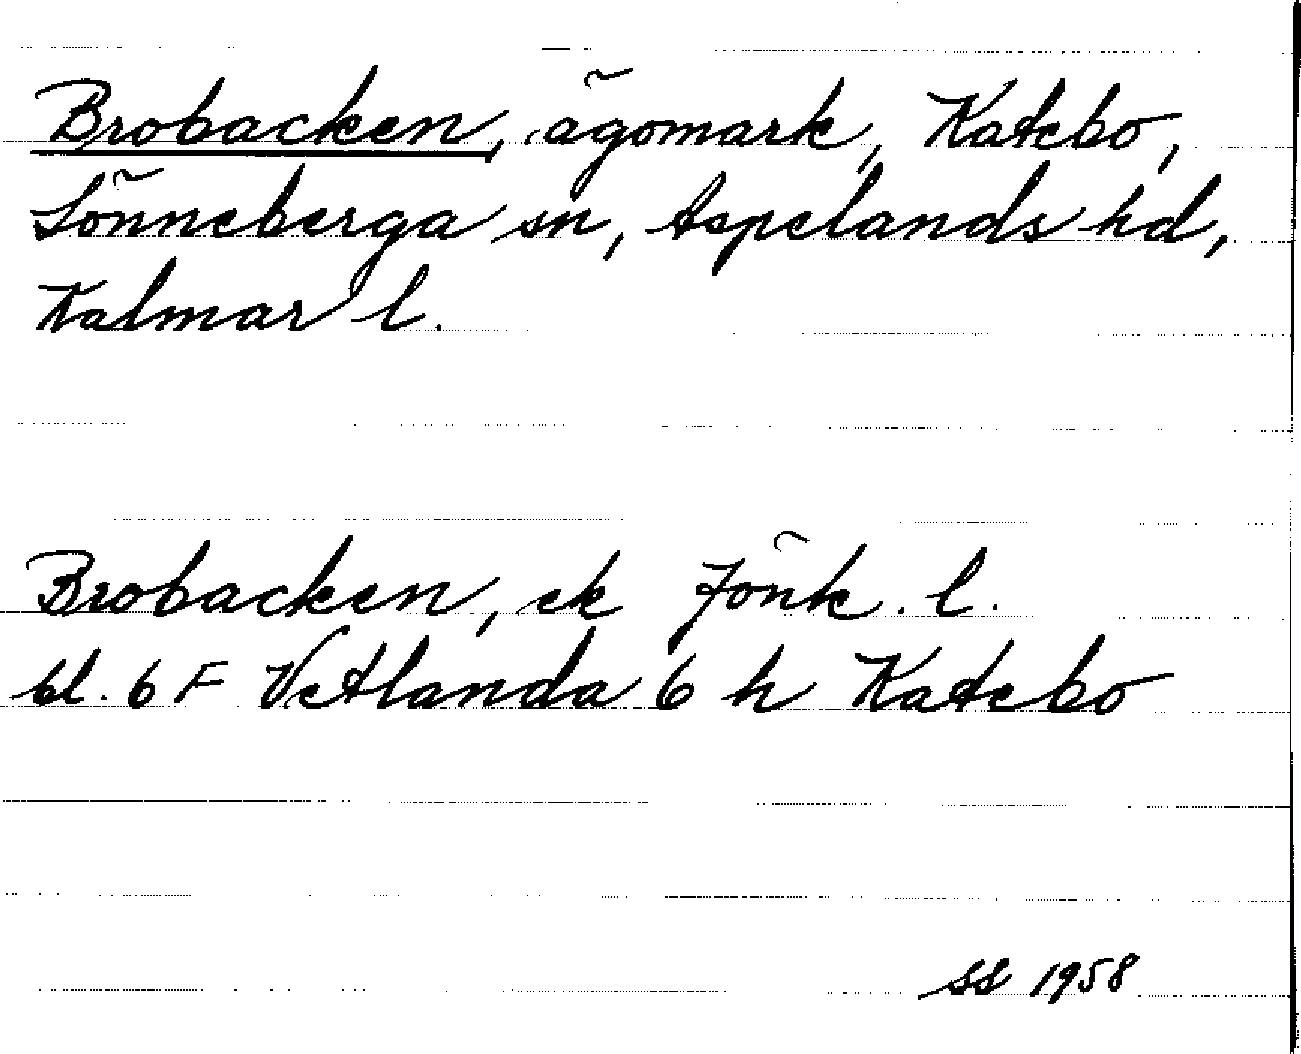 Brobacken, ägomark, Katebo,
Lönneberga sn, Aspelands hd,
Kalmar l.
Brobacken, ek Jönk. l.
bl. 6 F Vetlanda 6 h Katebo
SS 1958